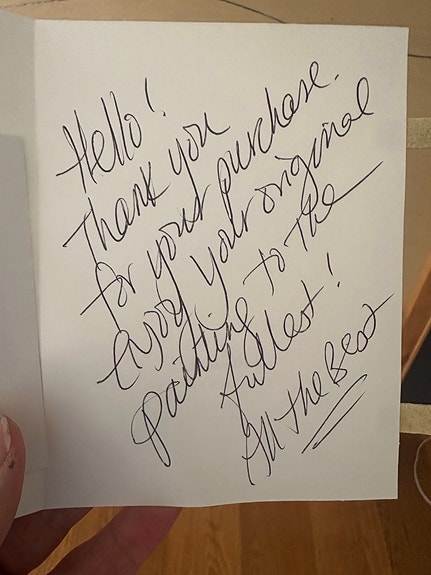 Hello!
Thank you
for your purchase.
Enjoy your original
painting to the
fullest!
All The Best